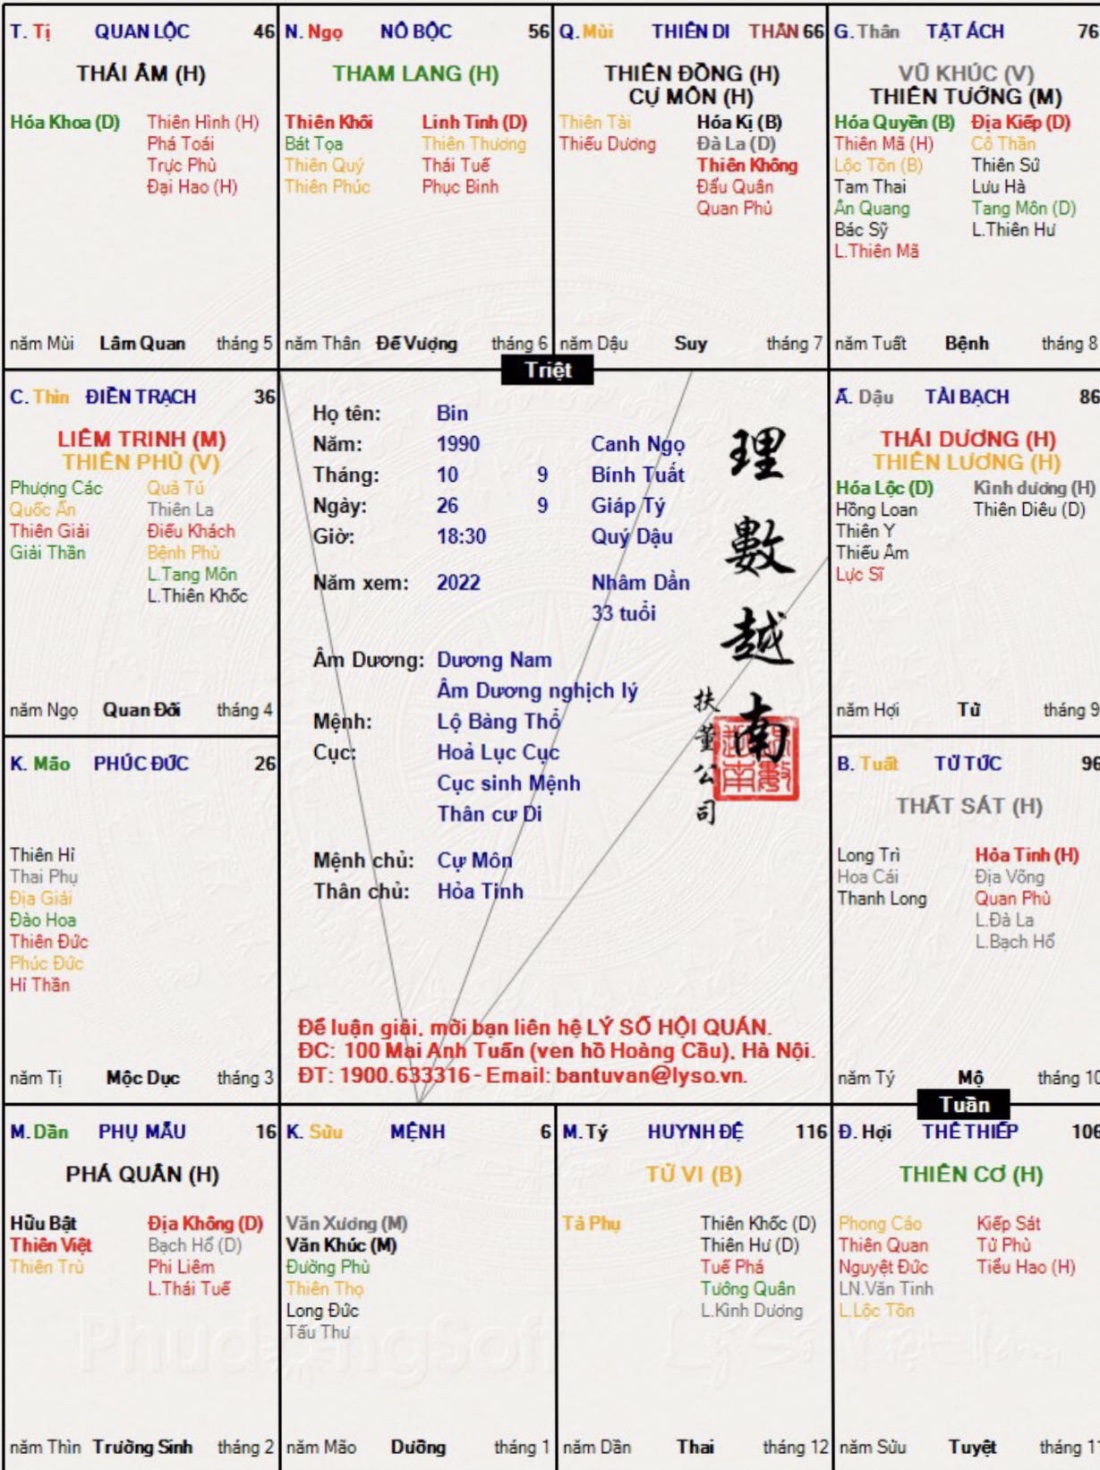 T. Tị QUAN LỘC 46
THÁI ÂM (H)
Hóa Khoa (D) Thiên Hình (H)
Phá Toái
Trực Phù
Đại Hao (H)
năm Mùi Lâm Quan tháng 5
N. Ngọ NÔ BỘC 56
THAM LANG (H)
Thiên Khôi Linh Tinh (D)
Bát Tọa Thiên Thương
Thiên Quý Thái Tuế
Thiên Phúc Phục Binh
năm Thân Đế Vượng tháng 6
Q. Mùi THIÊN DI THÂN 66
THIÊN ĐỒNG (H)
CỰ MÔN (H)
Thiên Tài Hóa Kị (B)
Thiếu Dương Đà La (D)
Thiên Không
Đẩu Quân
Quan Phủ
năm Dậu Suy tháng 7
G. Thân TẬT ÁCH 76
VŨ KHÚC (V)
THIÊN TƯỚNG (M)
Hóa Quyền (B) Địa Kiếp (D)
Thiên Mã (H) Cô Thần
Lộc Tồn (B) Thiên Sứ
Tam Thai Lưu Hà
Ân Quang Tang Môn (D)
Bác Sỹ L.Thiên Hư
L.Thiên Mã
năm Tuất Bệnh tháng 8
Triệt
C. Thìn ĐIỀN TRẠCH 36
LIÊM TRINH (M)
THIÊN PHỦ (V)
Phượng Các Quả Tú
Quốc Ấn Thiên La
Thiên Giải Điếu Khách
Giải Thần Bệnh Phù
L.Tang Môn
L.Thiên Khốc
năm Ngọ Quan Đới tháng 4
Họ tên: Bin
Năm: 1990 Canh Ngọ
Tháng: 10 9 Bính Tuất
Ngày: 26 9 Giáp Tý
Giờ: 18:30 Quý Dậu
Năm xem: 2022 Nhâm Dần
33 tuổi
Âm Dương: Dương Nam
Âm Dương nghịch lý
Mệnh: Lộ Bàng Thổ
Cục: Hoả Lục Cục
Cục sinh Mệnh
Thân cư Di
Mệnh chủ: Cự Môn
Thân chủ: Hỏa Tinh
理數越南
扶董公司
Để luận giải, mời bạn liên hệ LÝ SỐ HỘI QUÁN.
ĐC: 100 Mai Anh Tuấn (ven hồ Hoàng Cầu), Hà Nội.
ĐT: 1900.633316 - Email: bantuvan@lyso.vn.
Ấ. Dậu TÀI BẠCH 86
THÁI DƯƠNG (H)
THIÊN LƯƠNG (H)
Hóa Lộc (D) Kình dương (H)
Hồng Loan Thiên Diêu (D)
Thiên Y
Thiếu Âm
Lực Sĩ
năm Hợi Tử tháng 9
K. Mão PHÚC ĐỨC 26
Thiên Hỉ
Thai Phụ
Địa Giải
Đào Hoa
Thiên Đức
Phúc Đức
Hỉ Thần
năm Tị Mộc Dục tháng 3
B. Tuất TỬ TỨC 96
THẤT SÁT (H)
Long Trì Hỏa Tinh (H)
Hoa Cái Địa Võng
Thanh Long Quan Phù
L.Đà La
L.Bạch Hổ
năm Tý Mộ tháng 10
Tuần
M. Dần PHỤ MẪU 16
PHÁ QUÂN (H)
Hữu Bật Địa Không (D)
Thiên Việt Bạch Hổ (D)
Thiên Trù Phi Liêm
L.Thái Tuế
năm Thìn Trường Sinh tháng 2
K. Sửu MỆNH 6
Văn Xương (M)
Văn Khúc (M)
Đường Phù
Thiên Thọ
Long Đức
Tấu Thư
năm Mão Dưỡng tháng 1
M. Tý HUYNH ĐỆ 116
TỬ VI (B)
Tả Phụ Thiên Khốc (D)
Thiên Hư (D)
Tuế Phá
Tướng Quân
L.Kình Dương
năm Dần Thai tháng 12
Đ. Hợi THÊ THIẾP 106
THIÊN CƠ (H)
Phong Cáo Kiếp Sát
Thiên Quan Tử Phù
Nguyệt Đức Tiểu Hao (H)
LN.Văn Tinh
L.Lộc Tồn
năm Sửu Tuyệt tháng 11
PhudongSoft